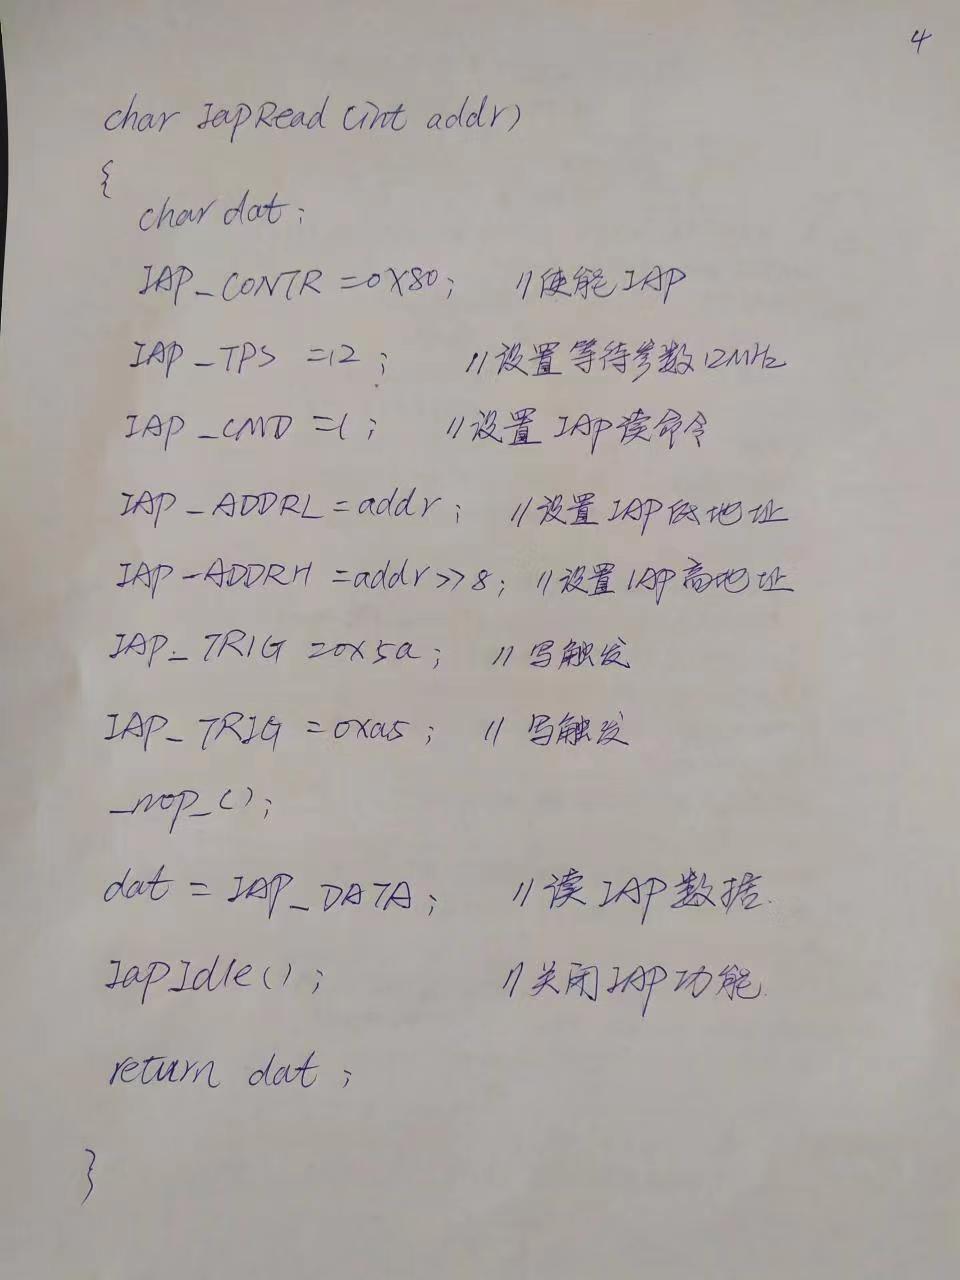 4
char IapRead (int addr)
{
char dat;
IAP_CONTR =0X80; //使能IAP
IAP_TPS =12; //设置等待参数12MHz
IAP_CMD =1; //设置IAP读命令
IAP_ADDRL =addr; //设置IAP低地址
IAP-ADDRH =addr>>8; //设置IAP高地址
IAP_TRIG =0x5a; //写触发
IAP_TRIG =0xa5; //写触发
_nop_();
dat = IAP_DATA; //读IAP数据.
IapIdle(); //关闭IAP功能.
return dat;
}